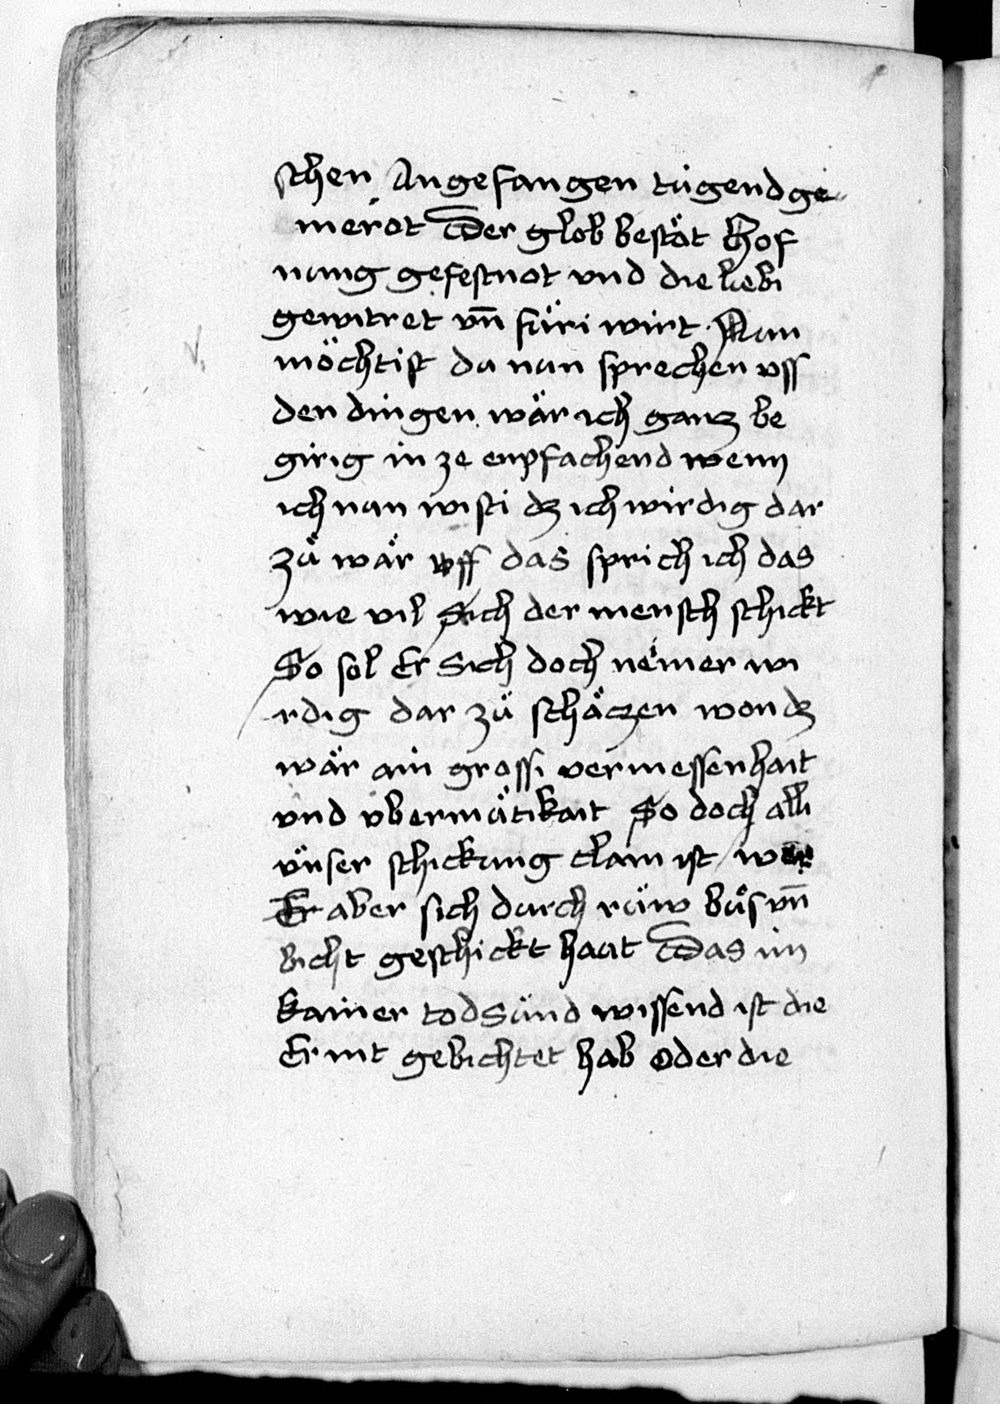 schen Angefangen tůgend ge
merot Der glob bestät Hof
nung gefestnot vnd die liebi
gewitret vn̄ füri wirt Nun
möchtist du nun sprechen vss
den dingen wär ich ganz be
girig in ze enpfachend wenn
ich nun wisti dz ich wirdig dar
zů wär vff das sprich ich das
wie vil Sich der mensch schickt
So sol Er Sich doch nemer wi
rdig dar zů schäczen won dz
wär ain grossi vermessenhait
vnd vbermůtikait So doch alli
vnser schickung clain ist wer
Er aber sich durch rüw bůs vn̄
bicht geschickt haut Das im
kainer todsünd wissend ist die
Er nit gebichtet hab oder die